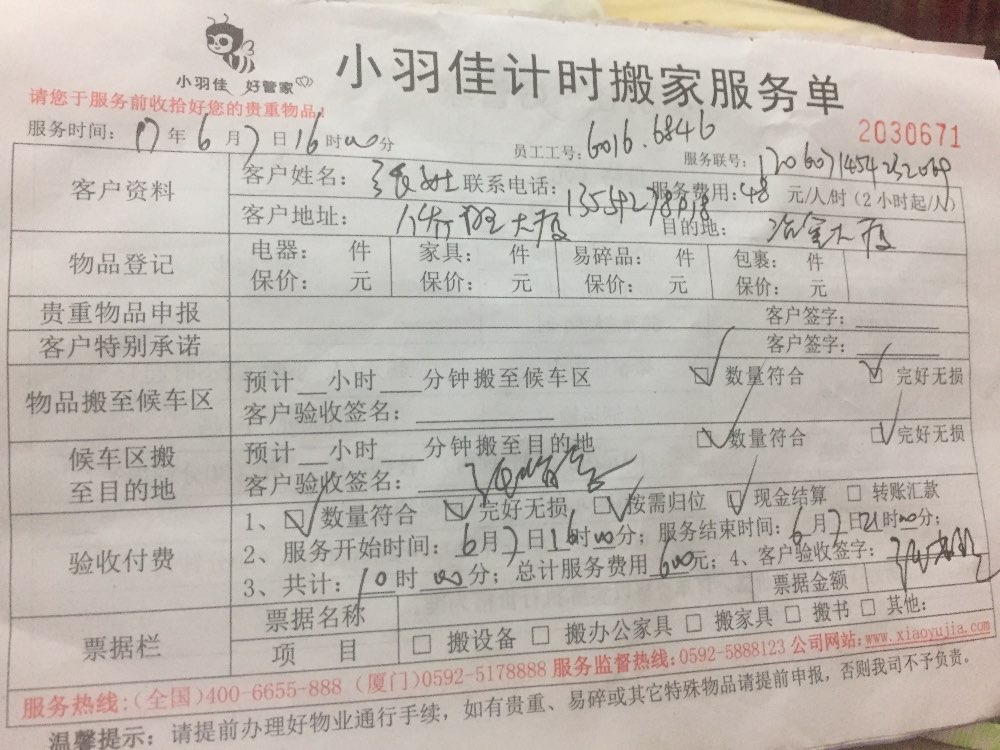 小羽佳 好管家
小羽佳计时搬家服务单
请您于服务前收拾好您的贵重物品!
2030671
服务时间: 17年6月7日16时00分 员工工号: 6016.6846 服务联号:
客户资料 客户姓名: 联系电话: 服务费用: 48 元/人/时(2小时起/人)
客户地址: 大厦 目的地: 冶金大厦
物品登记 电器: 件 家具: 件 易碎品: 件 包裹: 件
保价: 元 保价: 元 保价: 元 保价: 元
贵重物品申报 客户签字:
客户特别承诺 客户签字:
物品搬至候车区 预计__小时___分钟搬至候车区 数量符合 完好无损
客户验收签名:
候车区搬至目的地 预计__小时___分钟搬至目的地 数量符合 完好无损
客户验收签名:
验收付费 1、数量符合 完好无损 按需归位 现金结算 转账汇款
2、服务开始时间: 6月7日16时00分; 服务结束时间: 6月7日21时00分;
3、共计: 10时00分; 总计服务费用600元; 4、客户验收签字:
票据栏 票据名称 票据金额
项目 搬设备 搬办公家具 搬家具 搬书 其他:
服务热线:(全国)400-6655-888 (厦门)0592-5178888 服务监督热线:0592-5888123 公司网站:www.xiaoyujia.com
温馨提示: 请提前办理好物业通行手续, 如有贵重、易碎或其它特殊物品请提前申报, 否则我司不予负责。